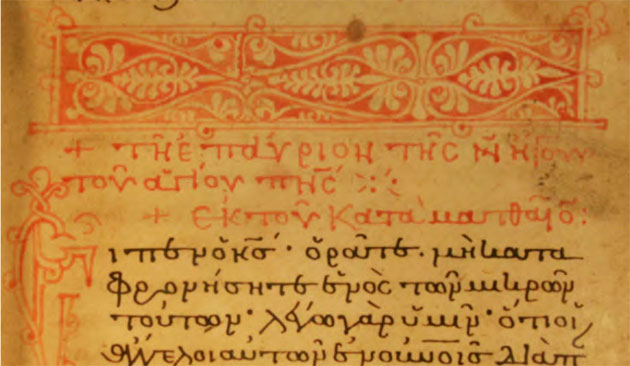 + τῆ ἐπαύριον τῆς Ν̄ ἤγουν
τοῦ ἁγίου πν̅ς ⁘
+ ἐκ τοῦ κατὰ ματθαῖον:
Εἶπεν ὁ κ̅ς· ὁρᾶτε· μὴ κατα
φρονήσητε ἑνὸς τῶν μικρῶν
τούτων· λέγω γὰρ ὑμῖν· ὅτι οἱ
ἄγγελοι αὐτῶν ἐν οὐν̅οις διὰ π